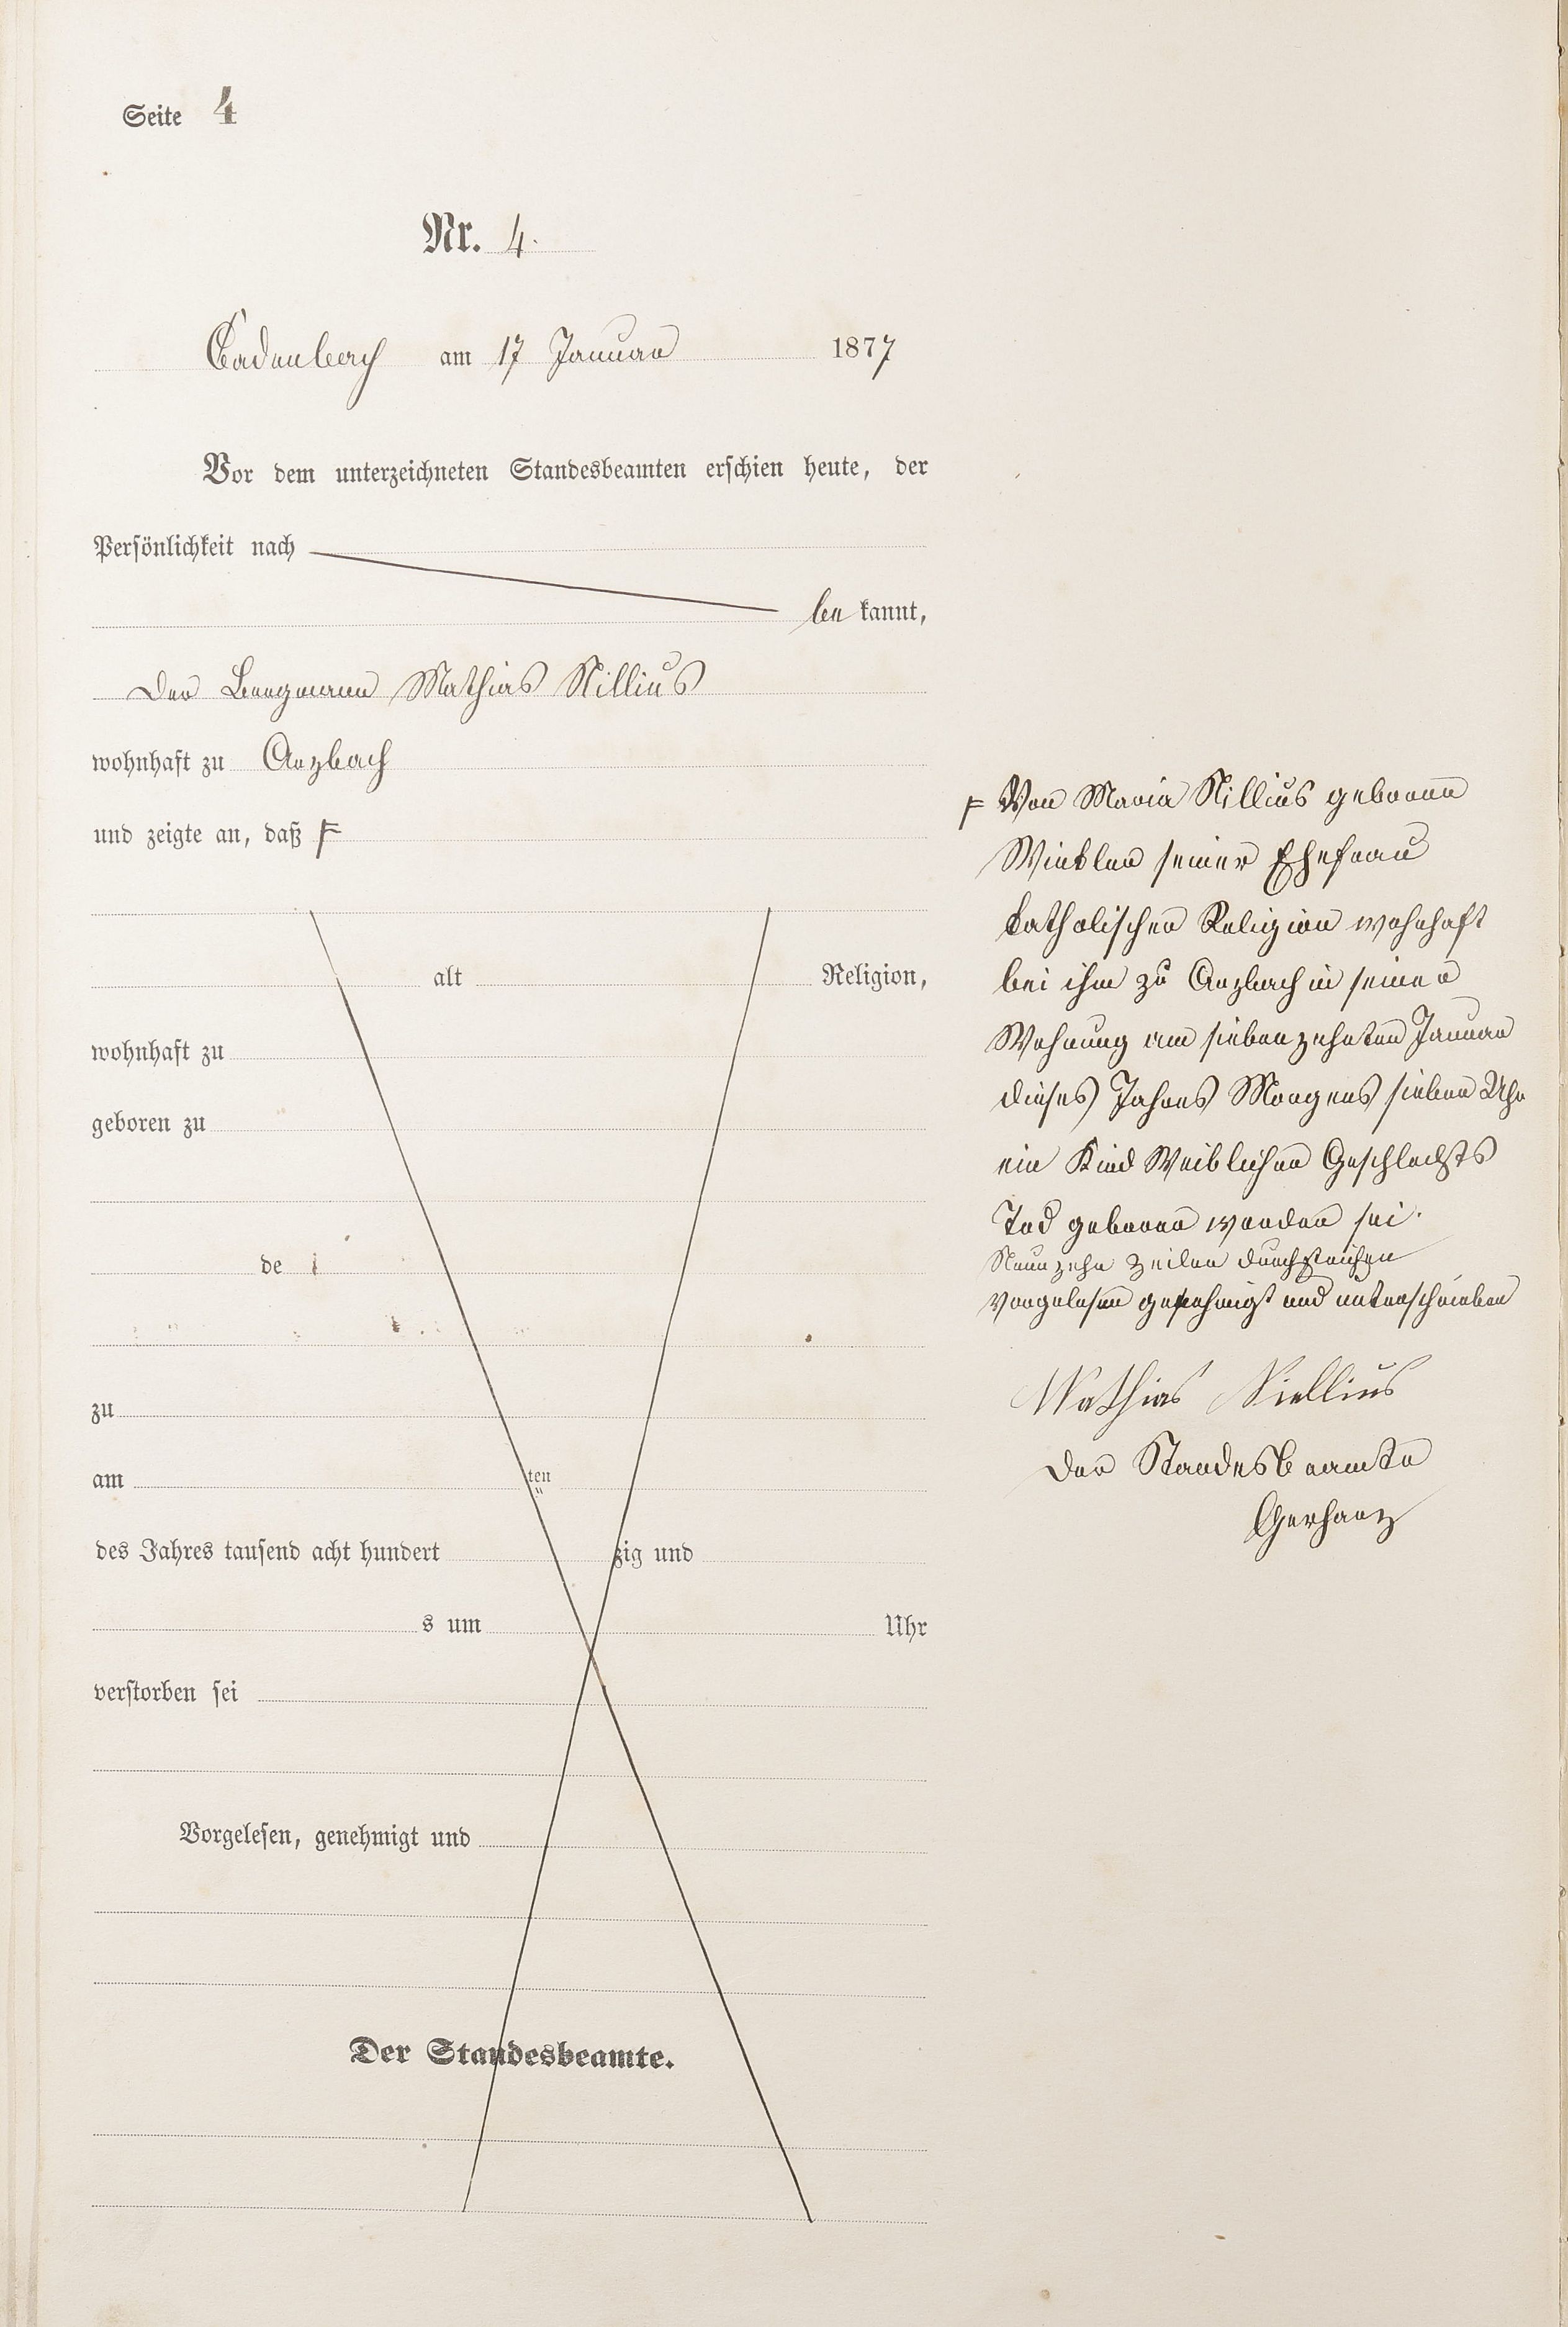 Seite 4
Nr. 4.
Cadenbach am 17 Januar 1877
Vor dem unterzeichneten Standesbeamten erschien heute, der
Persönlichkeit nach
be kannt,
der Bergmann Mathias Nillius
wohnhaft zu Arzbach
und zeigte an, daß F
alt Religion,
wohnhaft zu
geboren zu
de
zu
am ten
des Jahres tausend acht hundert zig und
s um Uhr
verstorben sei
Vorgelesen, genehmigt und
Der Standesbeamte.
F Von Maria Nillius geborene
Winkler seiner Ehefrau
katholischer Religion wohnhaft
bei ihm zu Arzbach in seiner
Wohnung am siebenzehnten Januar
dieses Jahres Morgens sieben Uhr
ein Kind Weiblichen Geschlechts
Tod geboren worden sei.
Neunzehn Zeilen durchstrichen
Vorgelesen genehmigt und unterschrieben
Mathias Niellius
der Standesbeamte
Gerharz